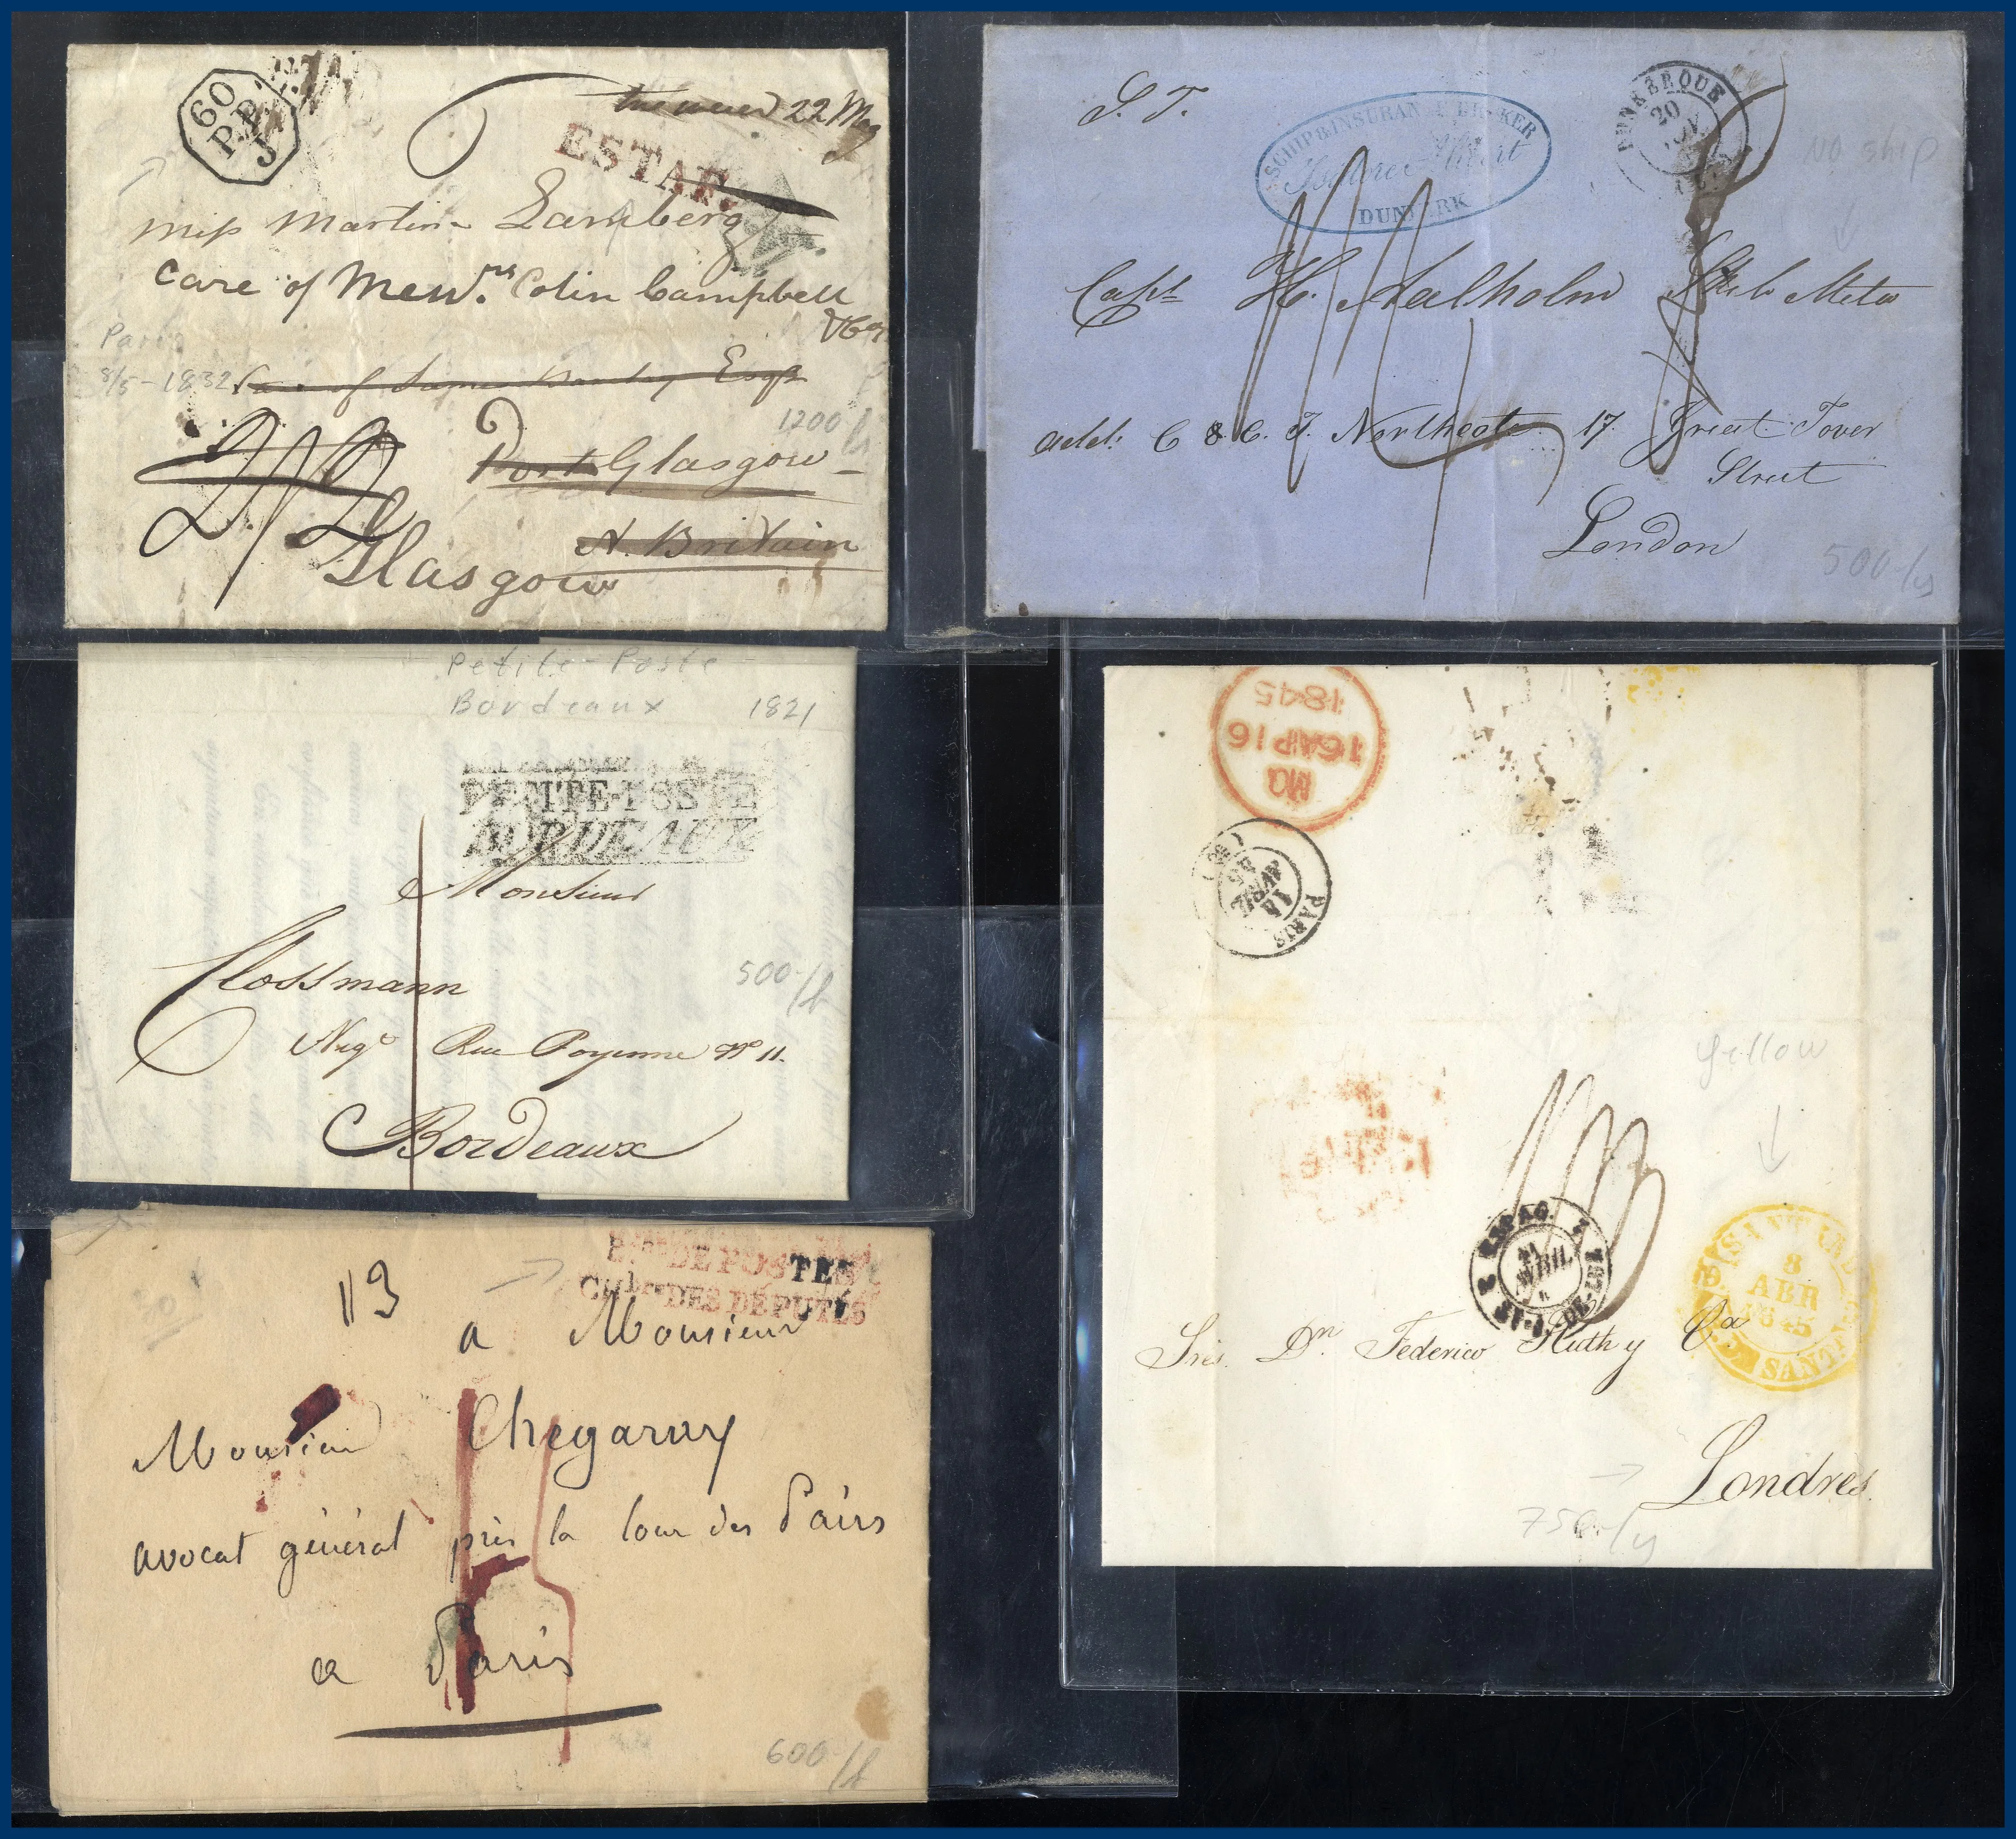 60
P.P.
J
22 May
ESTAF.
miss Martin Lamberg
care of Messrs. Colin Campbell
& Co.
Paris
8/5-1832
Esqr
1200
Port Glasgow
N. Britain
Glasgow
S. T.
SCHIP & INSURAN BROKER
DUNKERK
DUNKERQUE
20
no ship
Capt H. Aalholm
addr: C & C. J. Northcote 17 Great Tower
Street
London
500
Petite-Poste
Bordeaux 1821
PETITE-POSTE
BORDEAUX
Monsieur
Clossmann
500
Negt Rue Poyenne No 11.
Bordeaux
113
Bau DE POSTES
Chbre DES DÉPUTÉS
a Monsieur
Monsieur Chegaray
avocat général près la Cour des Pairs
a Paris
600
MQ
16 AP 16
1845
PARIS
14
AVRIL
45
(60)
yellow
2 ESPAG. 2
AVRIL
ST-J-DE-LUZ
8
ABR
1845
SANT
Sres. Dn. Federico Huth y Ca
Londres.
750